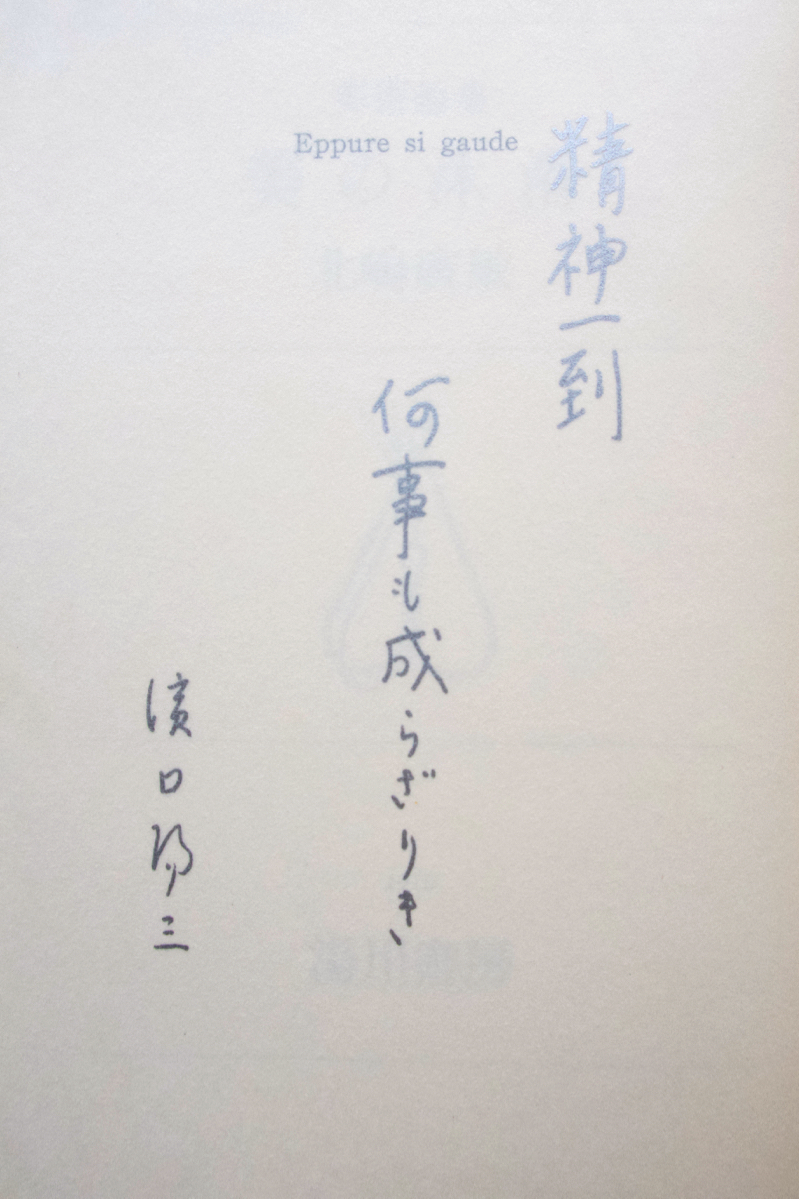 Eppure si gaude
精神一到
何事も成らざりき
濱口陽三